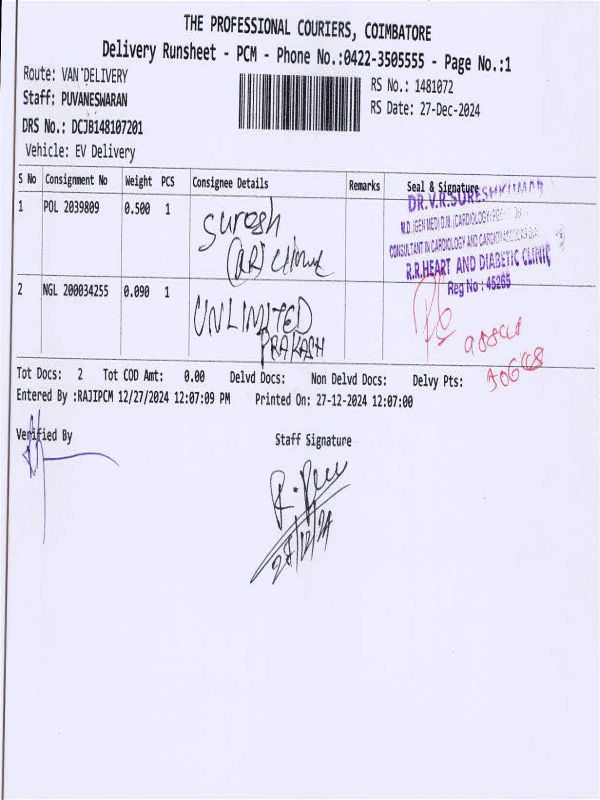 THE PROFESSIONAL COURIERS, COIMBATORE
Delivery Runsheet - PCM - Phone No.:0422-3505555 - Page No.:1
Route: VAN DELIVERY
RS No.: 1481072
Staff: PUVANESWARAN
RS Date: 27-Dec-2024
DRS No.: DCJB148107201
Vehicle: EV Delivery
S No Consignment No Weight PCS Consignee Details Remarks Seal & Signature
DR.V.R.SURESHKUMAR
1 POL 2039809 0.500 1 Suresh
M.D. (GEN MED) D.M. (CARDIOLOGY)
CONSULTANT IN CARDIOLOGY AND
R.R.HEART AND DIABETIC CLINIC
Reg No : 45265
2 NGL 200034255 0.090 1 UNLIMITED
PRAKASH
Tot Docs: 2 Tot COD Amt: 0.00 Delvd Docs: Non Delvd Docs: Delvy Pts:
Entered By :RAJIPCM 12/27/2024 12:07:09 PM Printed On: 27-12-2024 12:07:00
Verified By
Staff Signature